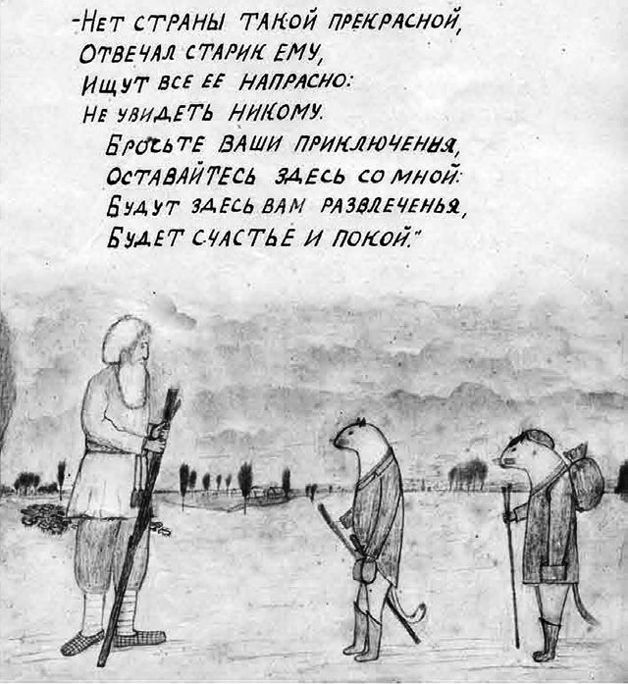 -Нет страны такой прекрасной,
Отвечал старик ему,
Ищут все ее напрасно:
Не увидеть никому.
Бросьте ваши приключенья,
Оставайтесь здесь со мной:
Будут здесь вам развлеченья,
Будет счастье и покой."